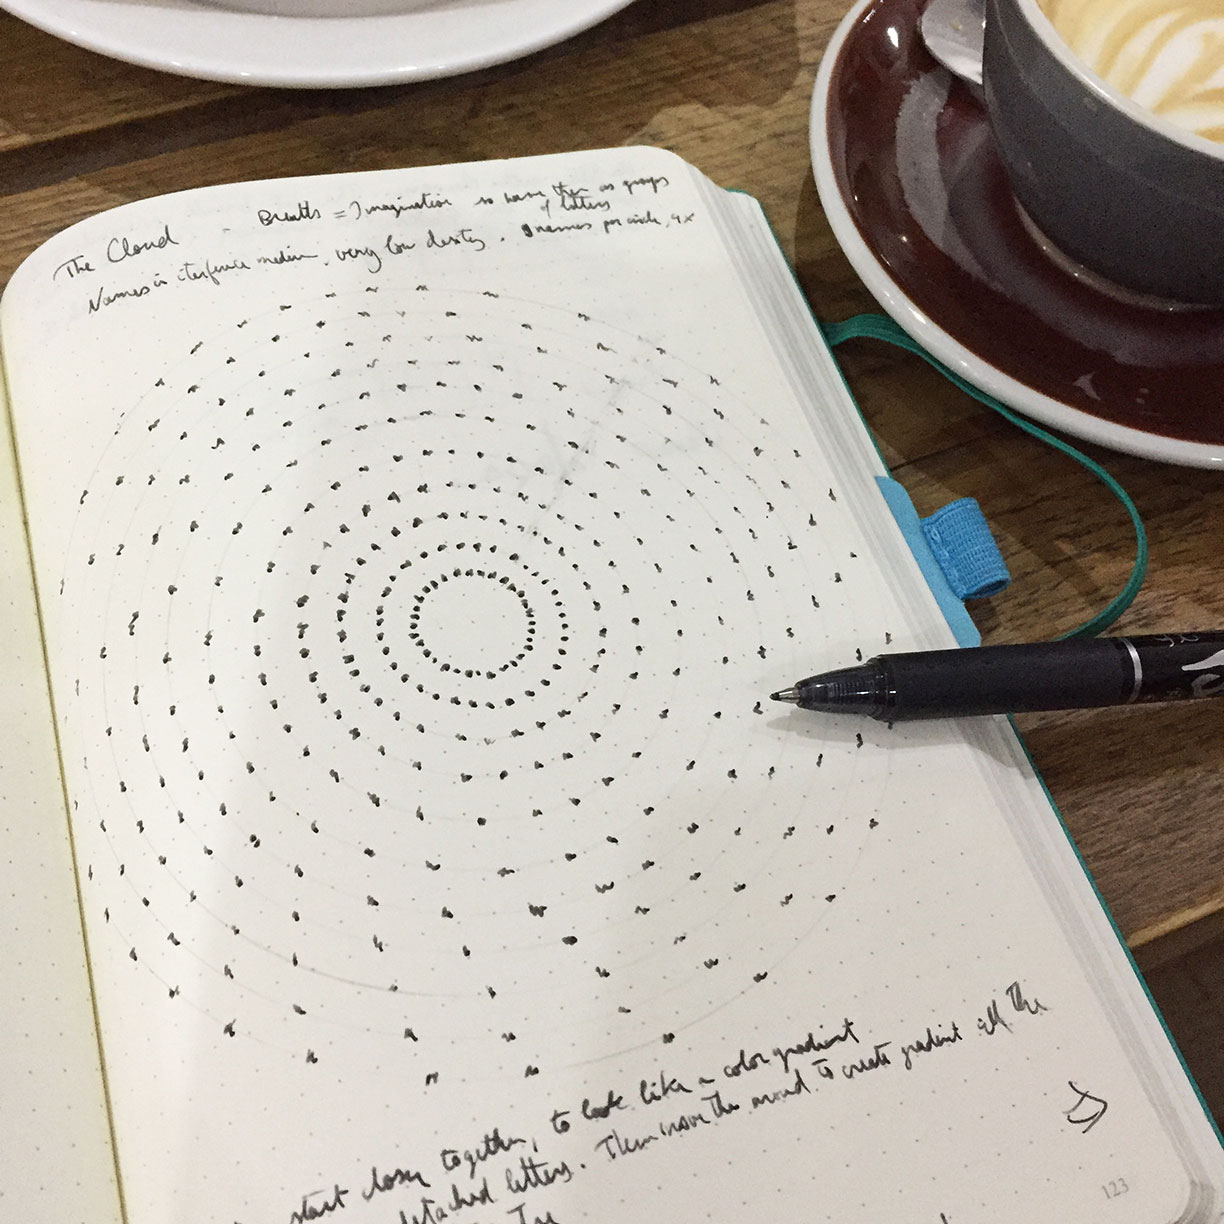 The Cloud - Breaths = Imagination so have them as groups
of letters
Names in interference medium, very low density. names per circle, 9x
start closer together, to look like a color gradient
detached letters. Then move them around to create gradient all the
123